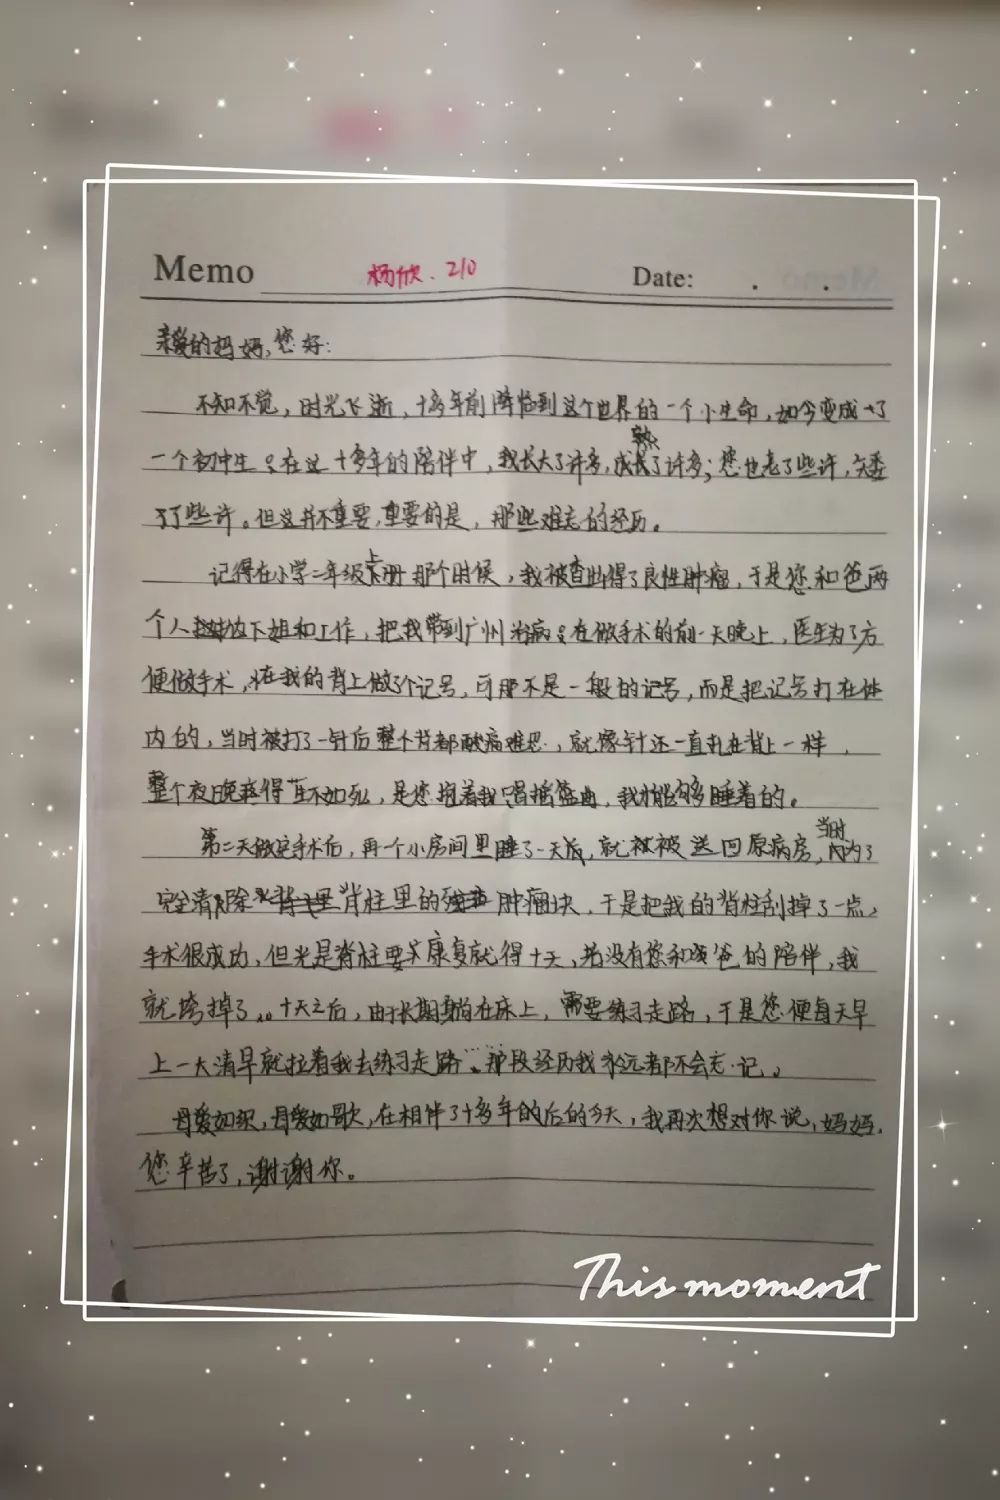 Memo 杨欣.210 Date: . .
亲爱的妈妈,您好:
不知不觉,时光飞逝,十多年前降临到这个世界的一个小生命,如今变成了
一个初中生。在这十多年的陪伴中,我长大了许多,成熟了许多;您也老了些许,矢委
了些许。但这并不重要,重要的是,那些难忘的经历。
记得在小学二年级上册那个时候,我被查出得了良性肿瘤,于是您和爸两
个人放下姐和工作,把我带到广州治病。在做手术的前一天晚上,医生为了方
便做手术,在我的背上做了个记号,可那不是一般的记号,而是把记号打在体
内的,当时被打了一针后整个背都酸痛难忍,就像针还一直扎在背上一样,
整个夜晚疼得生不如死,是您抱着我唱摇篮曲,我才能够睡着的。
第二天做完手术后,再一个小房间里睡了一天后,就被送回原病房,当时为了
完全清除背柱里的肿瘤块,于是把我的背柱刮掉了一点,
手术很成功,但光是脊柱要康复就得十天,若没有您和爸的陪伴,我
就垮掉了。十天之后,由于长期躺在床上,需要练习走路,于是您便每天早
上一大清早就拉着我去练习走路……那段经历我永远都不会忘记。
母爱如歌,在相伴了十多年的后的今天,我再次想对你说,妈妈,
您辛苦了,谢谢你。
This moment